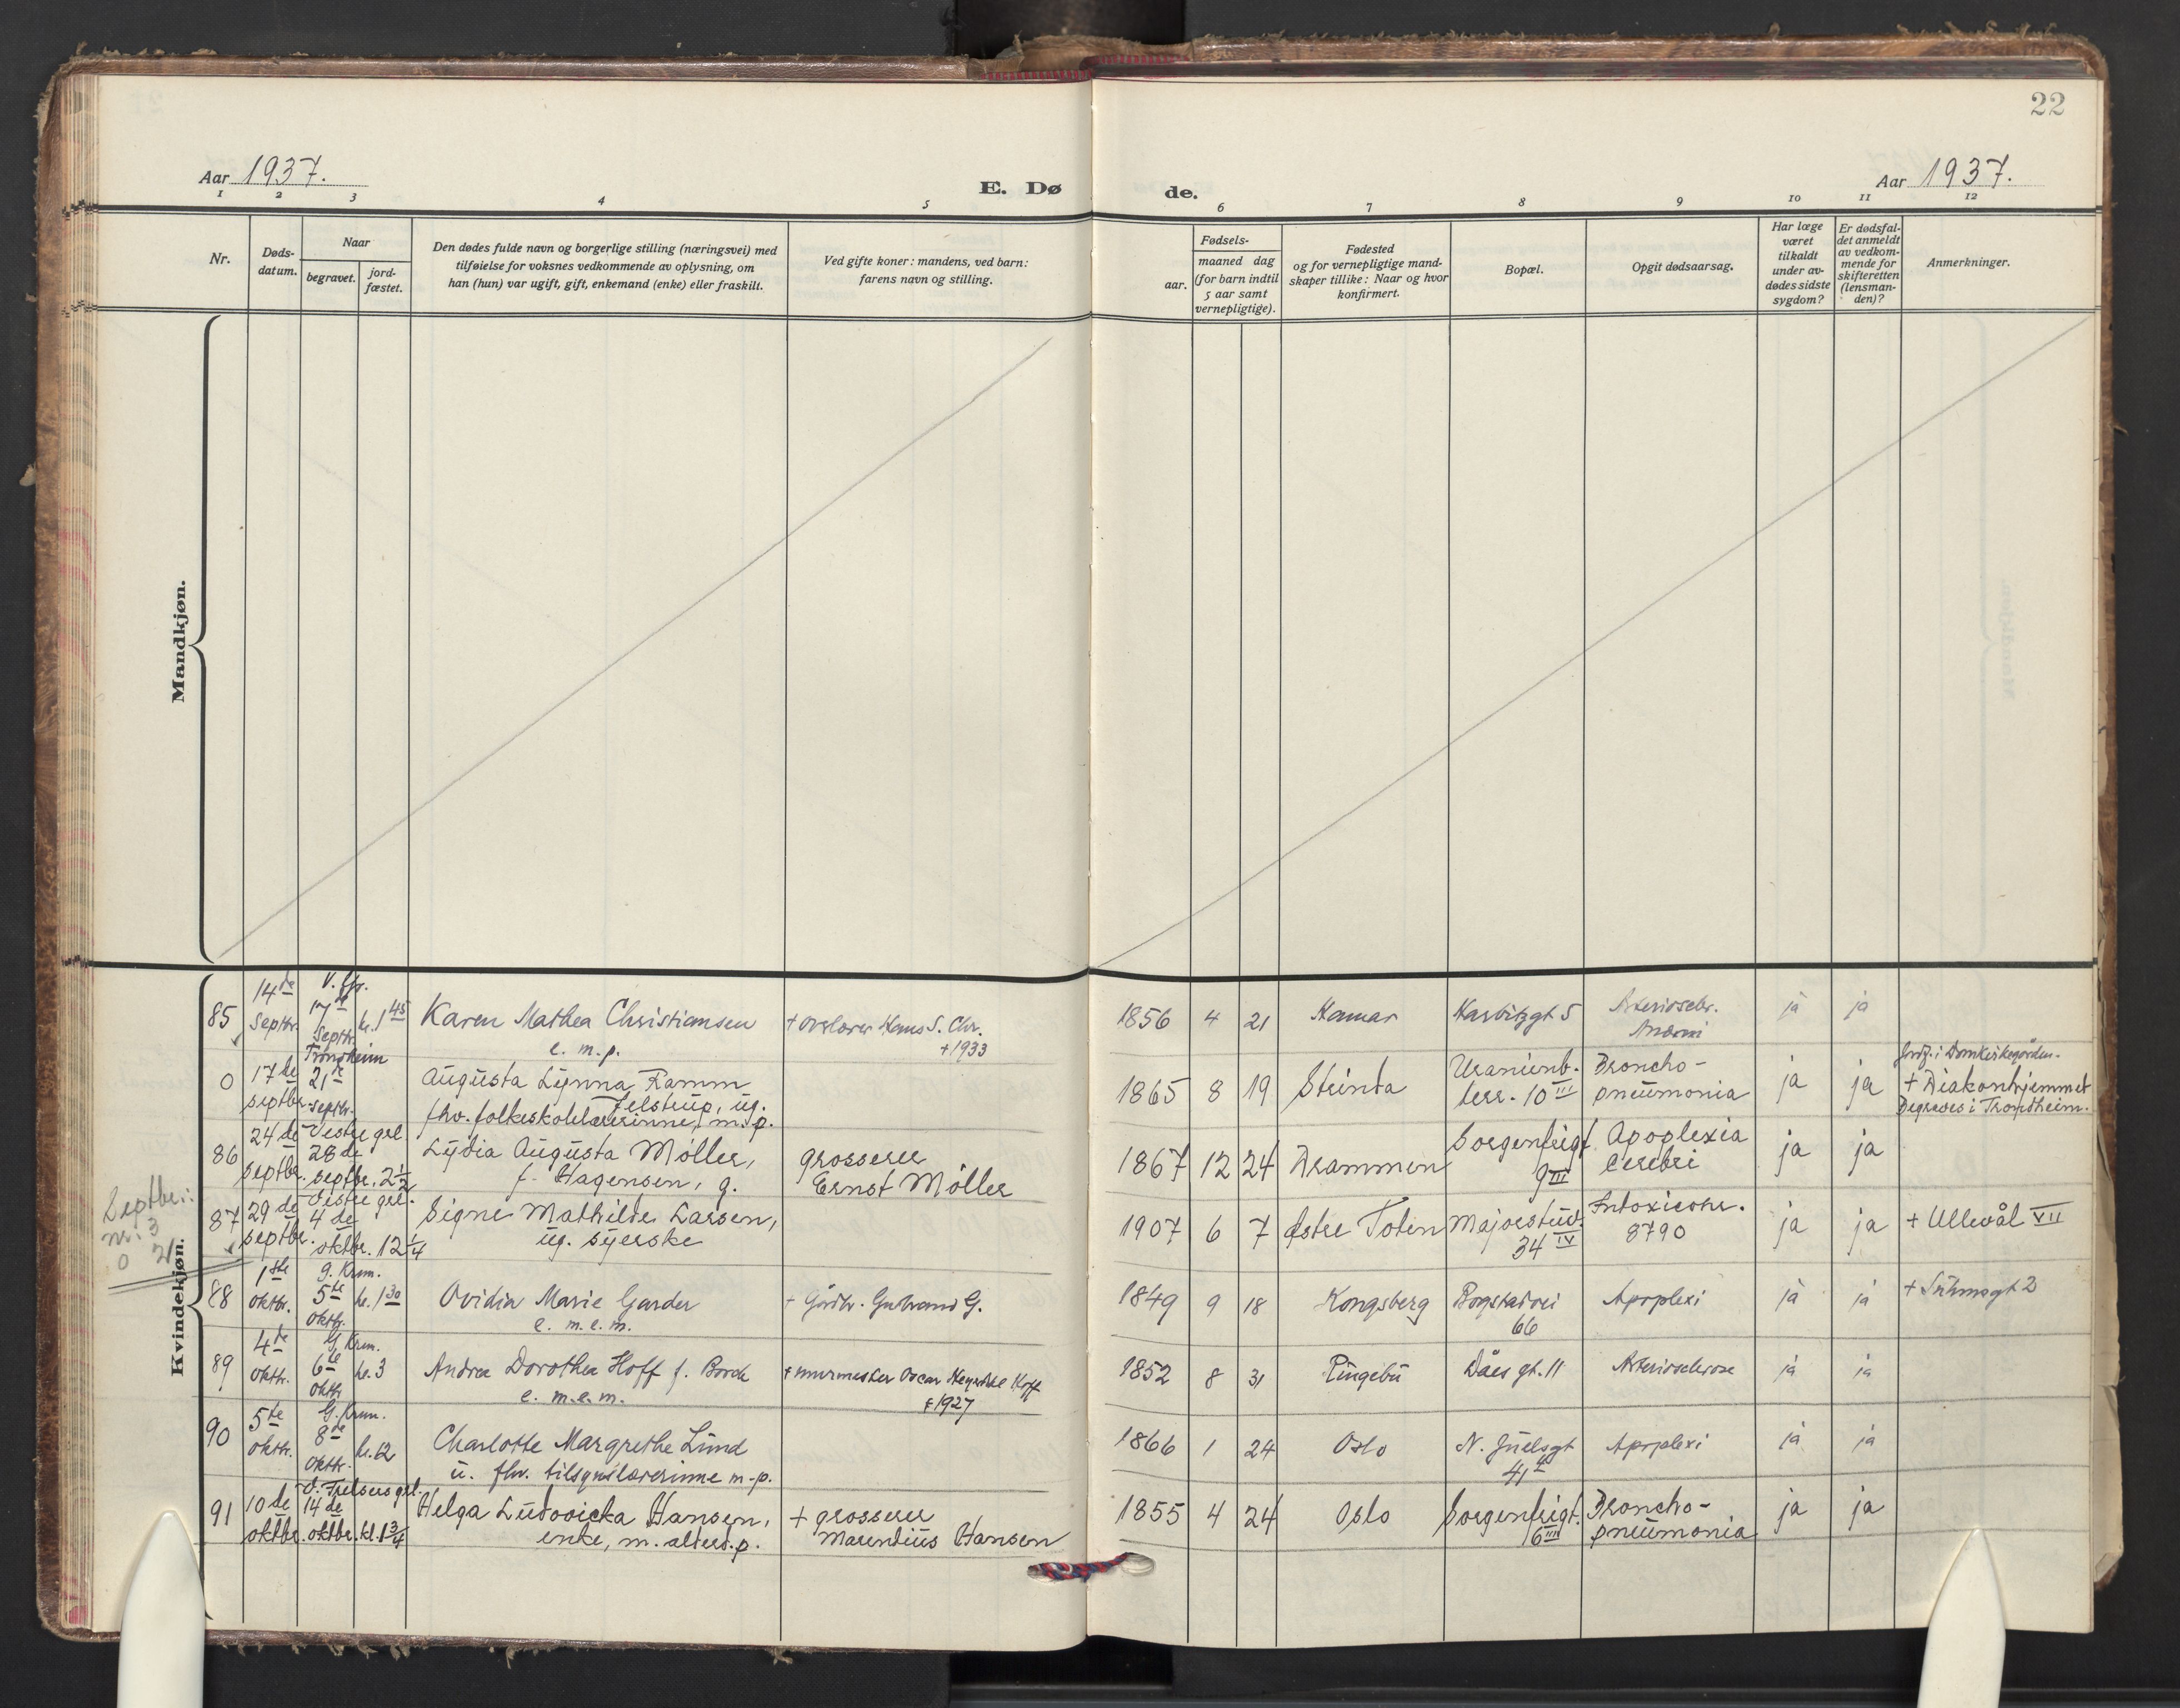 22
Aar 1937.
E. Dø
de.
Aar 1937.
1 2 3 4 5 6 7 8 9 10 11 12
Nr.
Døds-
datum.
Naar
begravet.
jord-
fæstet.
Den dødes fulde navn og borgerlige stilling (næringsvei) med
tilføielse for voksnes vedkommende av oplysning, om
han (hun) var ugift, gift, enkemand (enke) eller fraskilt.
Ved gifte koner: mandens, ved barn:
farens navn og stilling.
aar.
Fødsels-
maaned dag
(for barn indtil
5 aar samt
vernepligtige).
Fødested
og for vernepligtige mand-
skaper tillike: Naar og hvor
konfirmert.
Bopæl.
Opgit dødsaarsag.
Har læge
været
tilkaldt
under av-
dødes sidste
sygdom?
Er dødsfal-
det anmeldt
av vedkom-
mende for
skifteretten
(lensman-
den)?
Anmerkninger.
Mandkjøn.
Kvindekjøn.
Septbr.:
nr: 3
0 21
85
14de
Septbr.
17de
Septbr.
kl. 1 45
Karen Mathea Christiansen
e. m. p.
+ overlærer Hans S. Chr.
+ 1933
1856 4 21
Hamar
Harbitzgt 5
Arterioscler.
ja ja
0
17de
septbr.
Trondheim
21de
septbr.
Augusta Lynna Ramm
Jelstrup, ug.
fhv. folkeskolelærerinne, m. p.
1865 8 19
Strinda
Uranienb.
terr. 10 III
Broncho-
pneumonia
ja ja
Jordf. i Domkirkegården.
+ Diakonhjemmet
Begraves i Trondheim.
86
24de
septbr.
Vestre grl.
28de
septbr. 2 1/2
Lydia Augusta Möller,
f. Hagensen, g.
grosserer
Ernst Möller
1867 12 24
Drammen
Sorgenfrigt
9 III
Apoplexia
cerebri
ja ja
87
29de
septbr.
Vestre grl.
4de
oktbr. 12 1/4
Signe Mathilde Larsen,
ug. syerske
1907 6 7
Østre Toten
Majorstuv.
34 IV
8790
ja ja
+ Ullevål VII
88
1ste
oktbr.
g. Krem.
5te
oktbr.
kl. 1 30
Ovidia Marie Garder
e. m. e. m.
+ Gårdbr. Gulbrand G.
1849 9 18
Kongsberg
Bogstadvei
66
Apoplexi
ja ja
+ Suhmsgt 2
89
4de
oktbr.
G. Krem.
6te
oktbr.
kl. 3
Andrea Dorothea Hoff f. Borch
e. m. e. m.
+ murmester Oscar Heyerdahl Hoff
+ 1927
1852 8 31
Ringebu
Daas gt. 11
Arteriosclerose
ja ja
90
5te
oktbr.
G. Krem.
8de
oktbr.
kl. 12
Charlotte Margrethe Lund
u. fhv. tilsynslærerinne m. p.
1866 1 24
Oslo
N. Juelsgt
41
Apoplexi
ja ja
91
10de
oktbr.
V. Frelsers grl.
14de
oktbr. kl. 1 3/4
Helga Ludovicka Hansen,
enke, m. alderd. p.
+ grosserer
Marentius Hansen
1855 4 24
Oslo
Sorgenfrigt.
6 III
Broncho-
pneumonia
ja ja